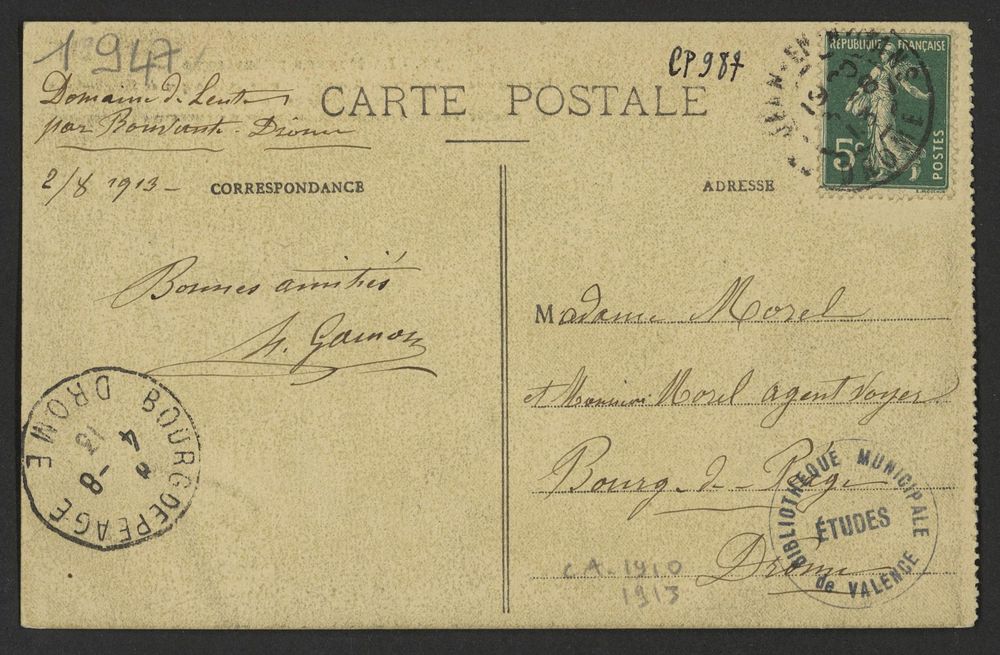 1947
CP 987
RÉPUBLIQUE FRANÇAISE
5c
POSTES
DROME
Domaine de Lente
par Bouvante - Drôme
CARTE POSTALE
2/8 1913 -
CORRESPONDANCE
ADRESSE
Bonnes amitiés
Madame Morel
et Monsieur Morel agent voyer
Bourg-de-Péage
Drôme
BOURG DE PEAGE
DROME
4 -8
13
BIBLIOTHÈQUE MUNICIPALE
ÉTUDES
de VALENCE
CA. 1910
1913